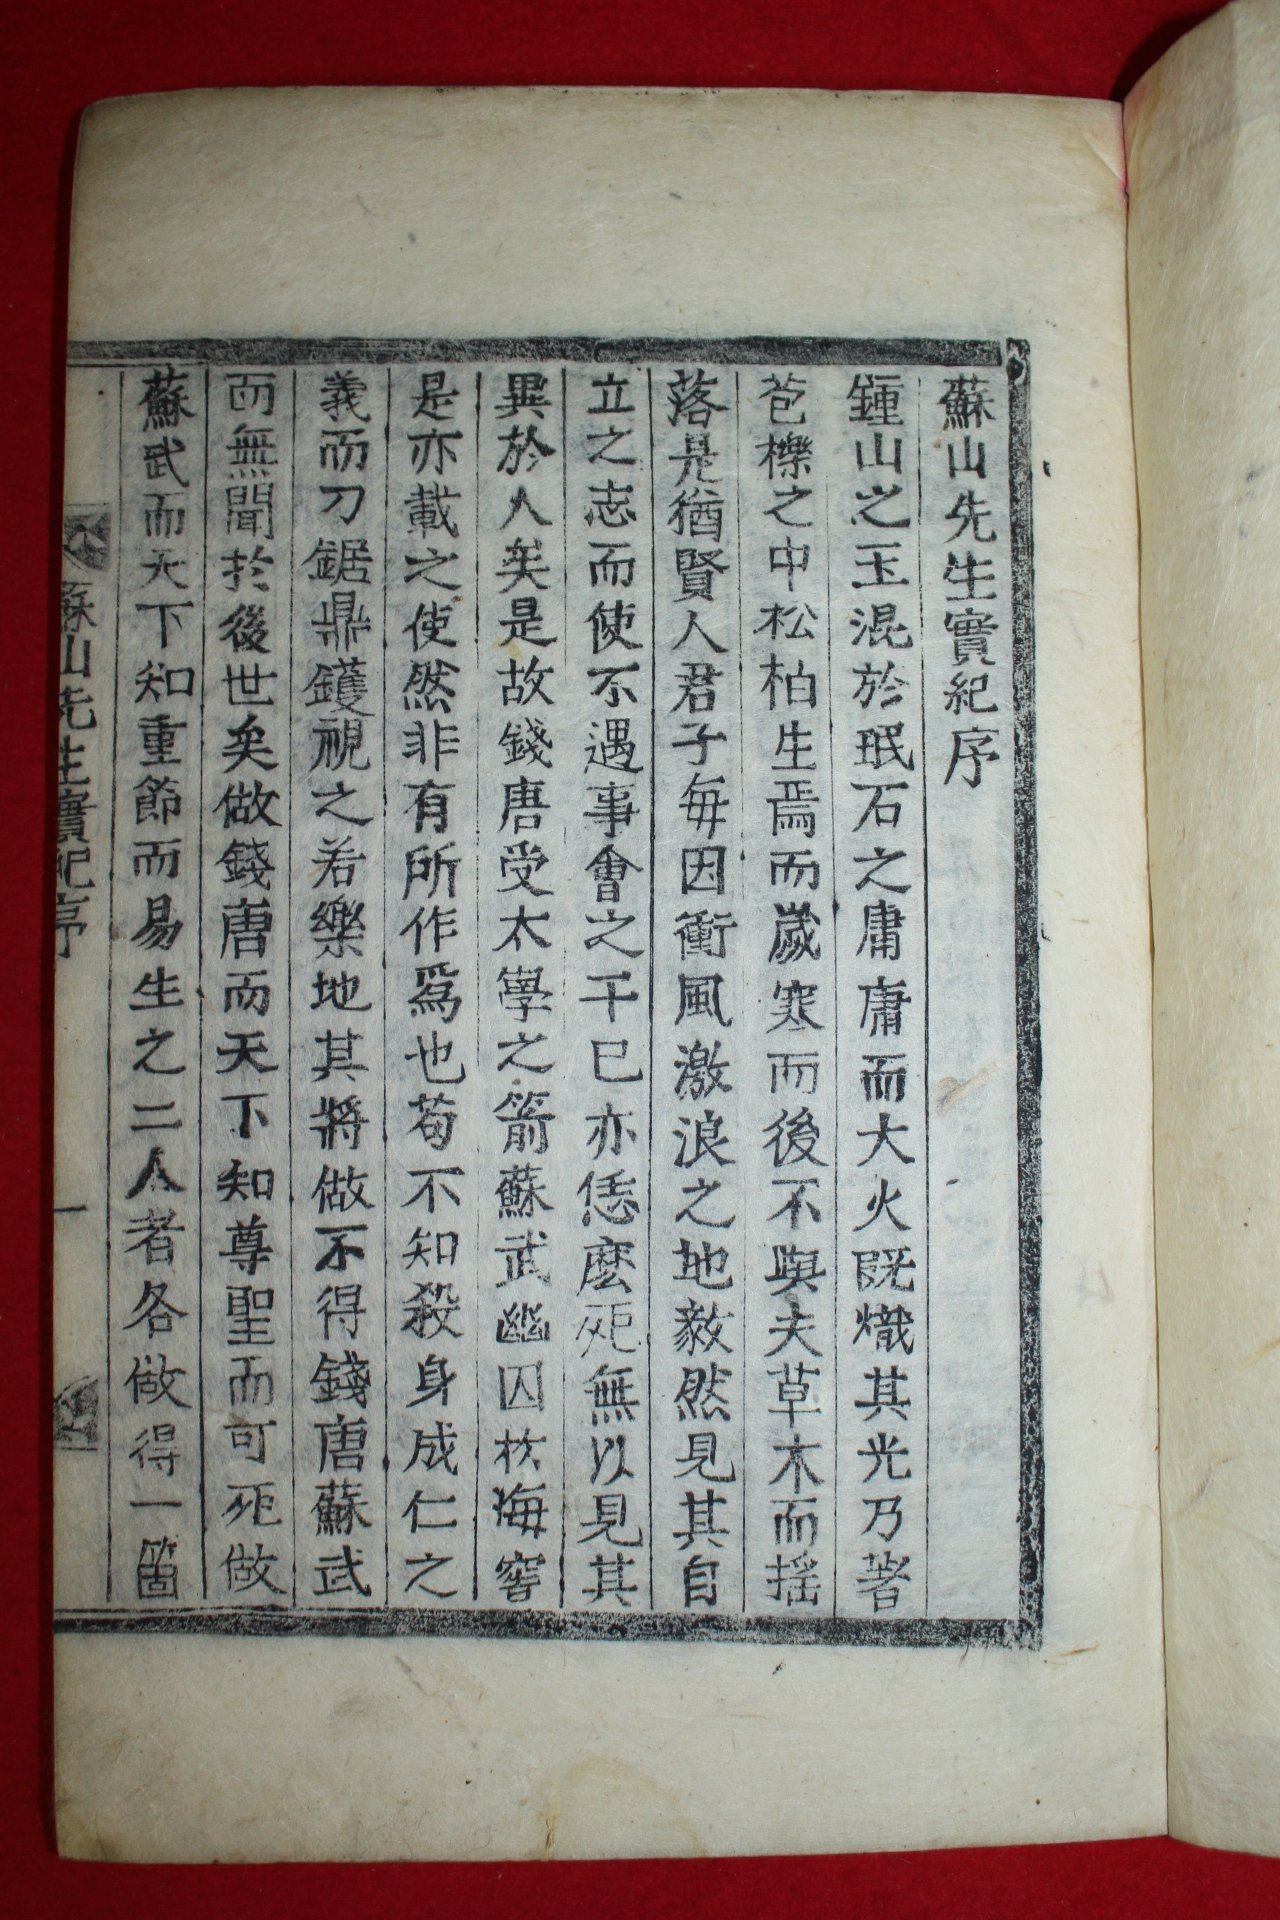 蘇山先生實紀序
鍾山之玉混於珉石之庸庸而大火旣熾其光乃著
苞櫟之中松柏生焉而歲寒而後不與夫草木而搖
落是猶賢人君子每因衝風激浪之地毅然見其自
立之志而使不遇事會之干已亦恁麽死無以見其
異於人矣是故錢唐受太學之箭蘇武幽囚於海窖
是亦載之使然非有所作爲也苟不知殺身成仁之
義而刀鋸鼎鑊視之若樂地其將做不得錢唐蘇武
而無聞於後世矣做錢唐而天下知尊聖而可死做
蘇武而天下知重節而易生之二人者各做得一箇
蘇山先生實紀序
一